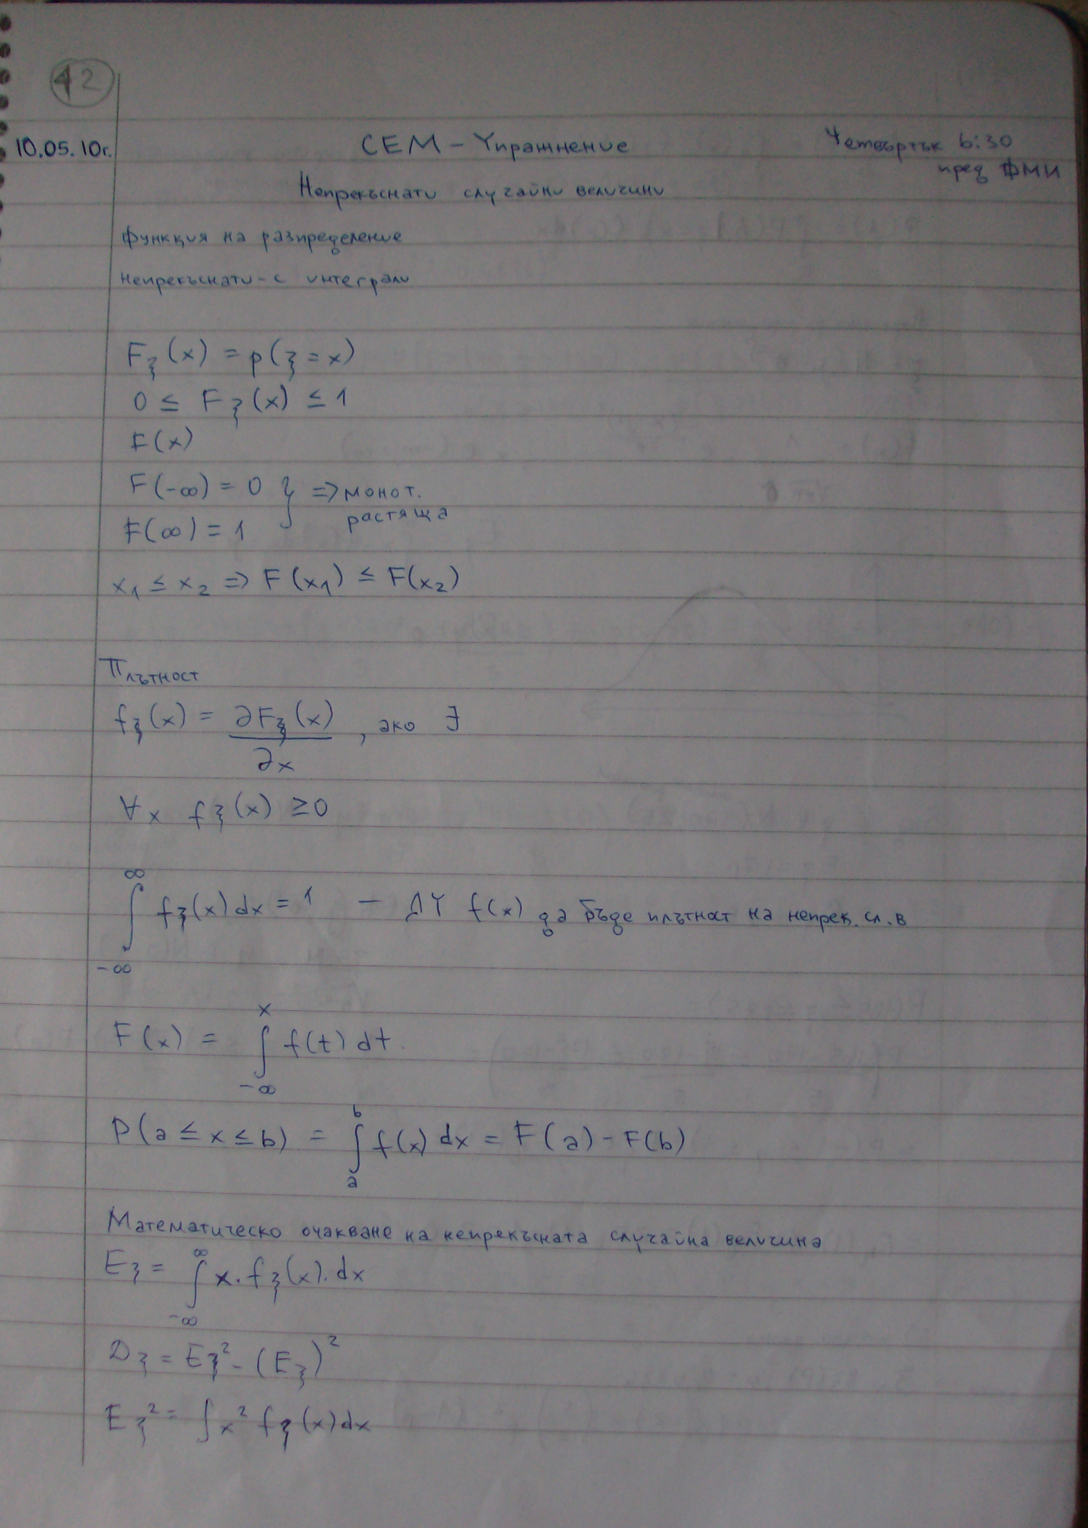 12
10.05.10г.
СЕМ - Упражнение
Четвъртък 6:30
пред ФМИ
Непрекъснати случайни величини
Функция на разпределение
непрекъснати - с интеграли
Fξ(x) = p(ξ = x)
0 ≤ Fξ(x) ≤ 1
F(x)
F(-∞) = 0 } => монот.
растяща
F(∞) = 1
x₁ ≤ x₂ => F(x₁) ≤ F(x₂)
Плътност
fξ(x) = ∂Fξ(x)/∂x , ако ∃
∀x fξ(x) ≥ 0
∫_{-∞}^{∞} fξ(x) dx = 1 - ДУ f(x) да бъде плътност на непрек. сл. в
F(x) = ∫_{-∞}^{x} f(t) dt.
P(a ≤ x ≤ b) = ∫_{a}^{b} f(x) dx = F(a) - F(b)
Математическо очакване на непрекъсната случайна величина
Eξ = ∫_{-∞}^{∞} x. fξ(x). dx
Dξ = Eξ² - (Eξ)²
Eξ² = ∫x² fξ(x) dx